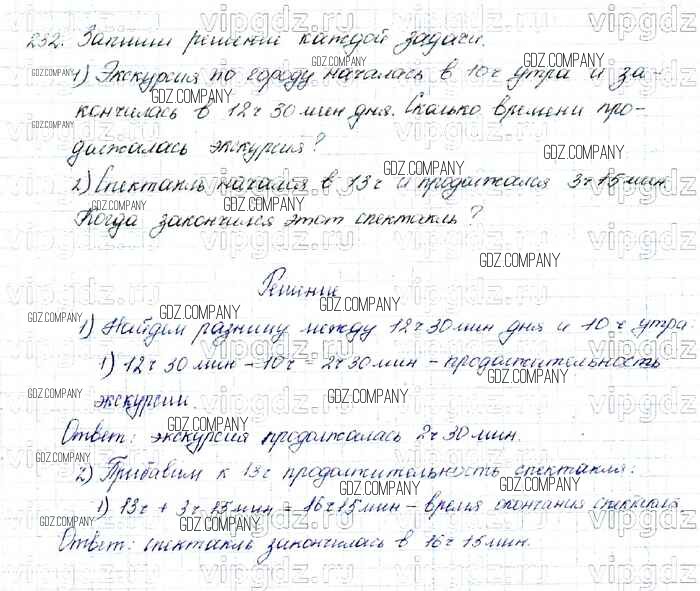 232. Запиши решение каждой задачи.
1) Экскурсия по городу началась в 10ч утра и за-
кончилась в 12ч 30 мин дня. Сколько времени про-
должалась экскурсия?
2) Спектакль начался в 13ч и продолжался 3ч 15 мин.
Когда закончился этот спектакль?
Решение
1) Найдем разницу между 12ч 30 мин дня и 10 ч утра:
1) 12ч 30 мин - 10ч = 2ч 30 мин - продолжительность
экскурсии.
Ответ: экскурсия продолжалась 2ч 30 мин.
2) Прибавим к 13ч продолжительность спектакля:
1) 13ч + 3ч 15 мин = 16ч 15 мин - время окончания спектакля.
Ответ: спектакль закончилась в 16ч 15 мин.